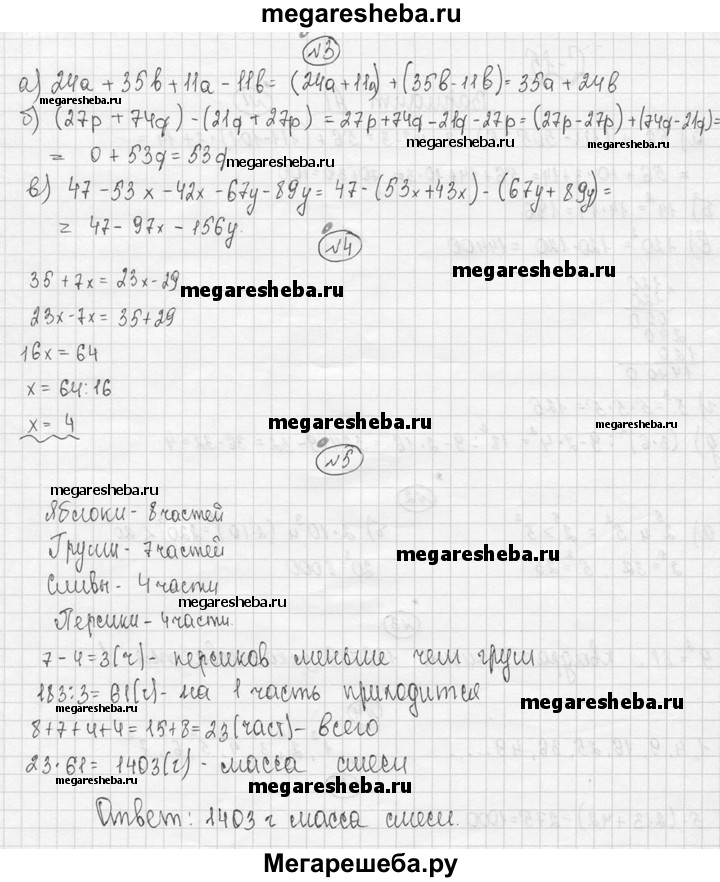 megaresheba.ru
№3
а) 24а + 35в + 11а - 11в = (24а+11а) + (35в-11в) = 35а + 24в
megaresheba.ru
б) (27р + 74q) - (21q + 27р) = 27р+74q-21q-27р = (27р-27р) + (74q-21q)=
= 0 + 53q = 53q
megaresheba.ru
в) 47 - 53х - 42х - 67у - 89у = 47 - (53х+43х) - (67у + 89у) =
= 47 - 97х - 156у
№4
35 + 7х = 23х - 29
megaresheba.ru
megaresheba.ru
23х - 7х = 35 + 29
16х = 64
х = 64:16
х = 4
megaresheba.ru
megaresheba.ru
№5
megaresheba.ru
Яблоки - 8 частей
Груши - 7 частей
megaresheba.ru
Сливы - 4 части
megaresheba.ru
Персики - 4 части.
7 - 4 = 3(ч) - персиков меньше чем груш
183:3 = 61(г) - на 1 часть приходится
megaresheba.ru
megaresheba.ru
8+7+4+4 = 15+8 = 23(част) - всего
23·61 = 1403(г) - масса смеси
megaresheba.ru
Ответ: 1403 г масса смеси.
Мегарешеба.ру